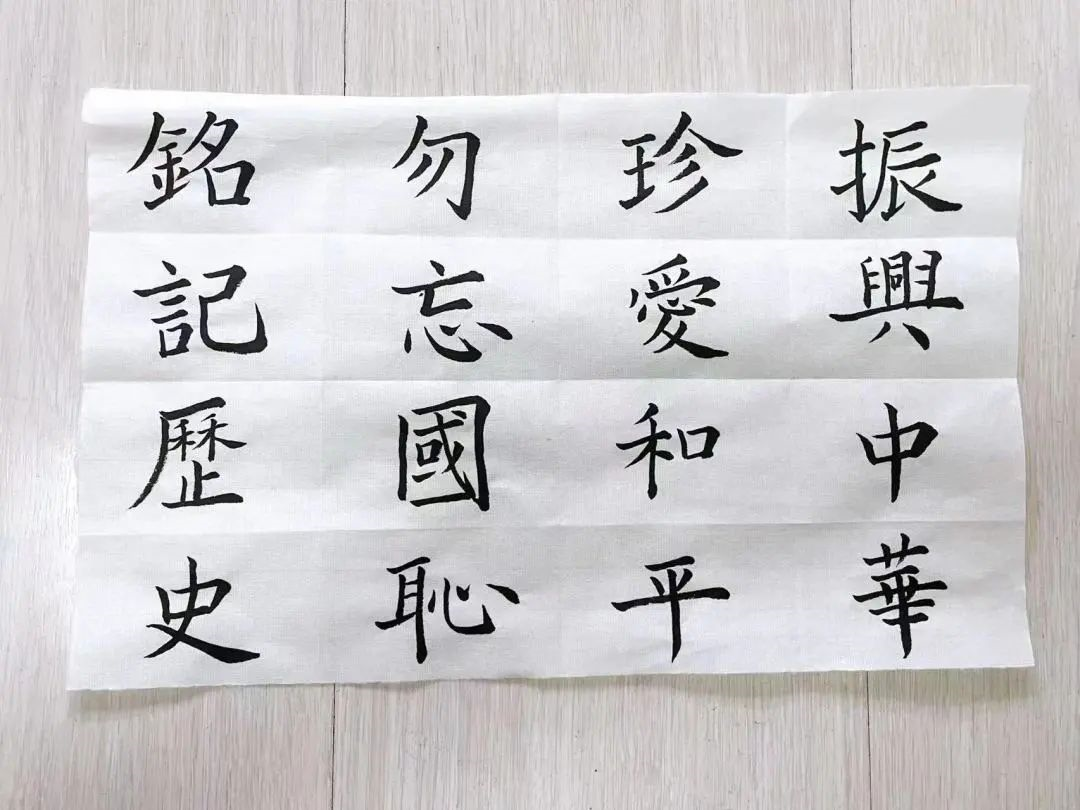 銘記歷史
勿忘國恥
珍愛和平
振興中華